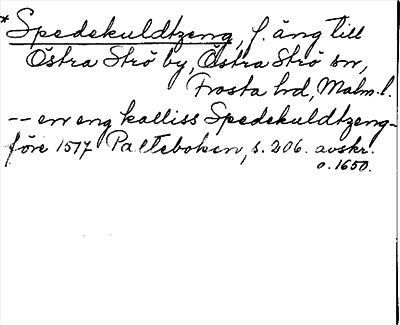 *Spedekuldtzeng, f. äng till
Östra Strö by, Östra Strö sn,
Frosta hd, Malm. l.
-- en eng kalliss Spedekuldtzeng -
före 1517 Palteboken, s. 206. avskr.
o. 1650.